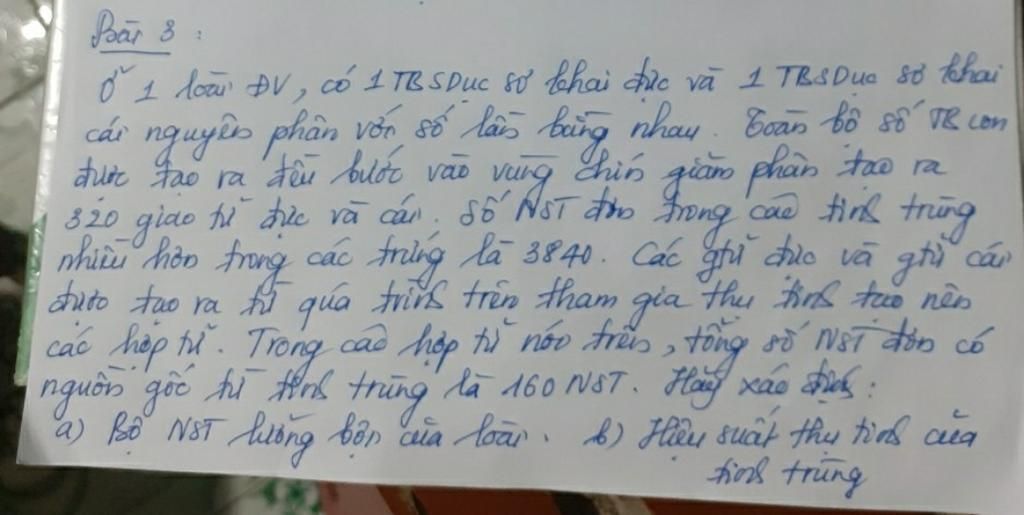 Bài 3 :
Ở 1 loài ĐV, có 1 TBSDục sơ khai đực và 1 TBSDục sơ khai
cái nguyên phân với số lần bằng nhau. Toàn bộ số TB con
được tạo ra đều bước vào vùng chín giảm phân tạo ra
320 giao tử đực và cái. Số NST đơn trong các tinh trùng
nhiều hơn trong các trứng là 3840. Các gtử đực và gtử cái
được tạo ra từ quá trình trên tham gia thụ tinh tạo nên
các hợp tử. Trong các hợp tử nói trên, tổng số NST đơn có
nguồn gốc từ tinh trùng là 160 NST. Hãy xác định :
a) Bộ NST lưỡng bội của loài. b) Hiệu suất thụ tinh của
tinh trùng